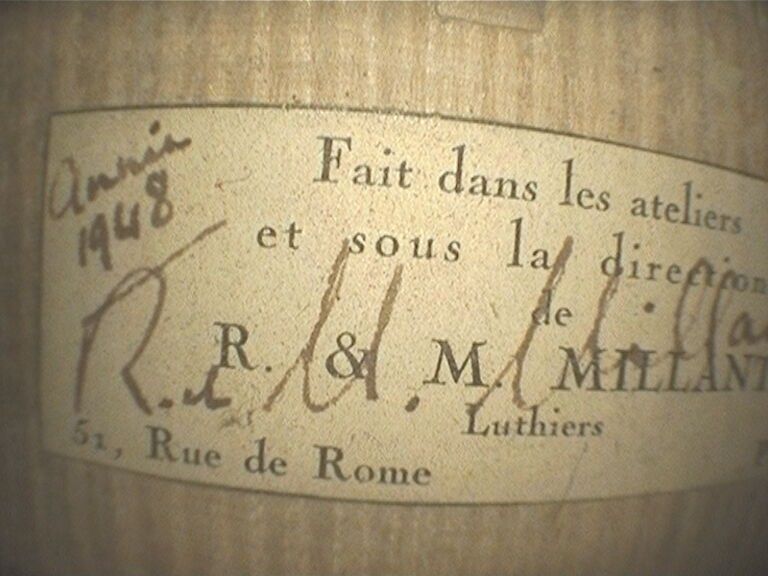 Année
1948
Fait dans les ateliers
et sous la direction
de
R. & M. MILLANT
R. et M. Milla
Luthiers
51, Rue de Rome P